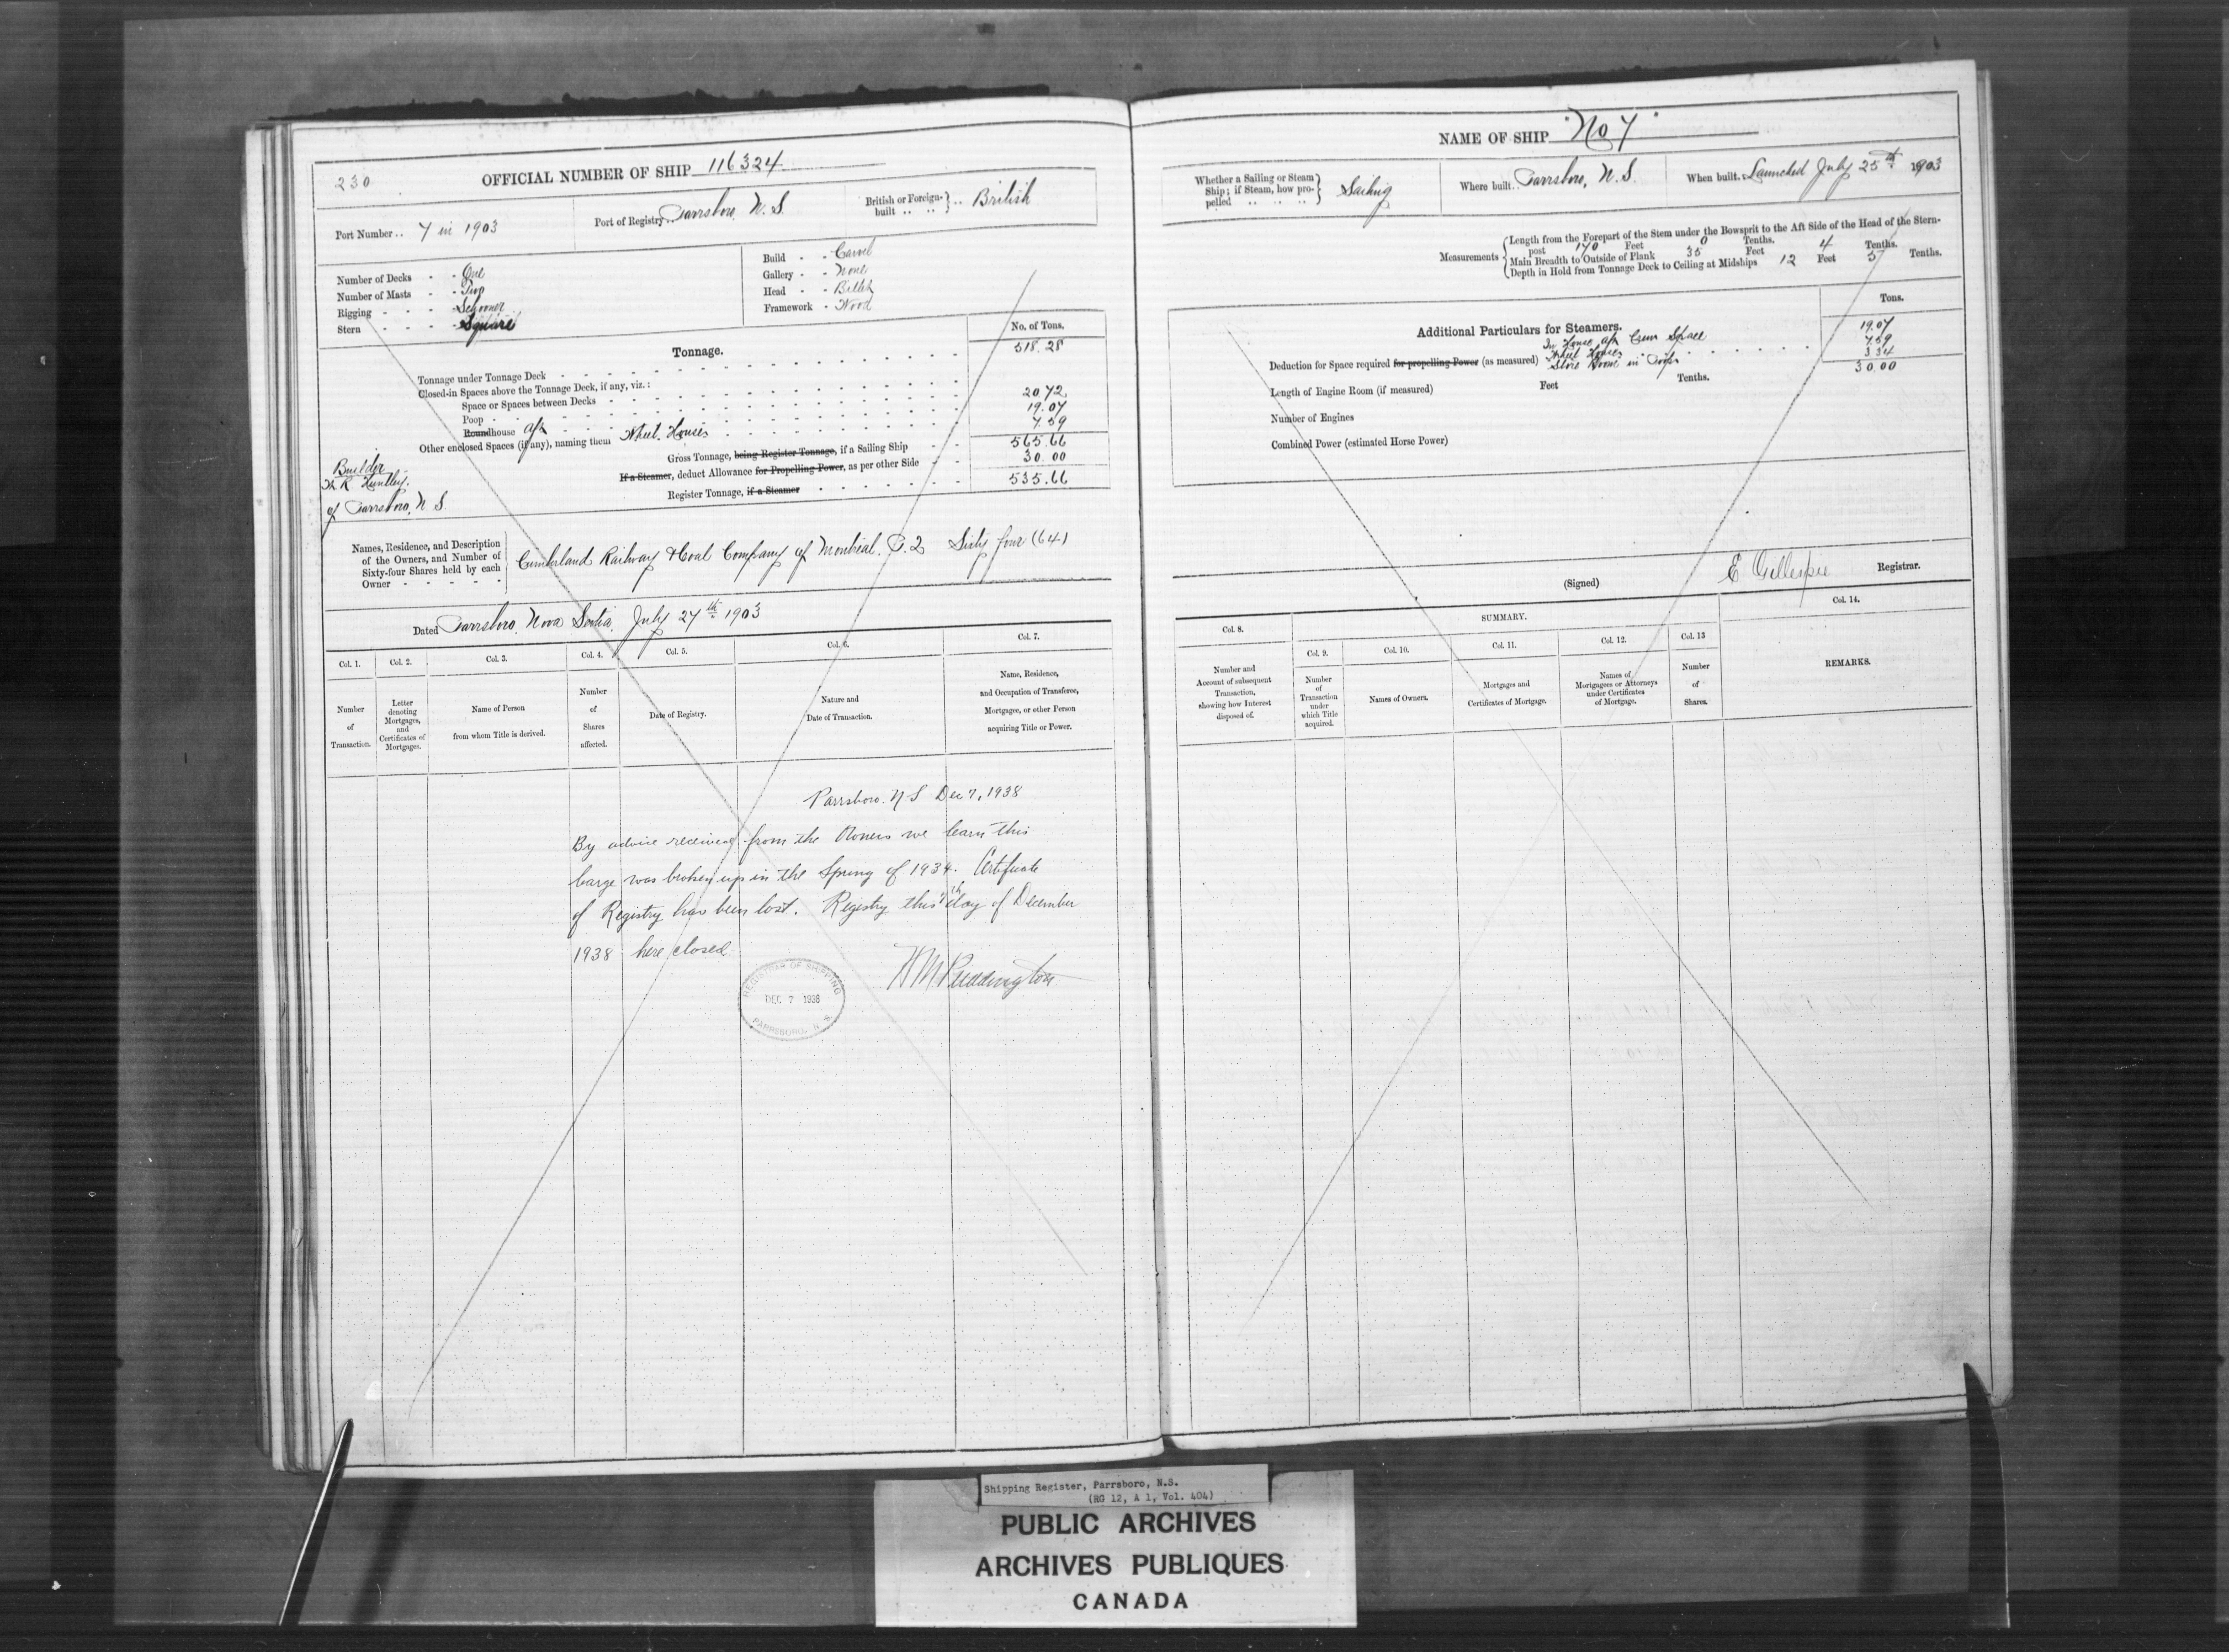 230
OFFICIAL NUMBER OF SHIP 116324
Port Number .. 7 in 1903
Port of Registry .. Parrsboro, N.S.
British or Foreign-built .. .. British
Number of Decks - - One
Number of Masts - - Two
Rigging - - - Schooner
Stern - - - Square
Build - - Carvel
Gallery - - None
Head - - Billet
Framework - Wood
Tonnage.
No. of Tons.
Tonnage under Tonnage Deck 518.28
Closed-in Spaces above the Tonnage Deck, if any, viz.:
Space or Spaces between Decks
Poop 20.72
Roundhouse aft 19.07
Other enclosed Spaces (if any), naming them Wheel Houses 7.59
Gross Tonnage, being Register Tonnage, if a Sailing Ship 565.66
If a Steamer, deduct Allowance for Propelling Power, as per other Side 30.00
Register Tonnage, if a Steamer 535.66
Builder
Huntley.
of Parrsboro, N.S.
Names, Residence, and Description
of the Owners, and Number of
Sixty-four Shares held by each
Owner - - - - -
Cumberland Railway & Coal Company of Montreal. P.Q Sixty four (64)
Dated Parrsboro, Nova Scotia, July 27th 1903
Col. 1. Col. 2. Col. 3. Col. 4. Col. 5. Col. 6. Col. 7.
Number of Transaction.
Letter denoting Mortgages, and Certificates of Mortgages.
Name of Person from whom Title is derived.
Number of Shares affected.
Date of Registry.
Nature and Date of Transaction.
Name, Residence, and Occupation of Transferee, Mortgagee, or other Person acquiring Title or Power.
Parrsboro. N S Dec 7, 1938
By advice received from the Owners we learn this
barge was broken up in the Spring of 1934. Certificate
of Registry has been lost. Registry this 7th day of December
1938 here closed.
REGISTRAR OF SHIPPING
DEC 7 1938
PARRSBORO, N. S.
NAME OF SHIP "No 7"
Whether a Sailing or Steam
Ship; if Steam, how pro-
pelled .. .. ..
Sailing
Where built .. Parrsboro, N.S.
When built. Launched July 25th 1903
Measurements
Length from the Forepart of the Stem under the Bowsprit to the Aft Side of the Head of the Stern-
post 170 Feet 0 Tenths.
Main Breadth to Outside of Plank 35 Feet 4 Tenths.
Depth in Hold from Tonnage Deck to Ceiling at Midships 12 Feet 5 Tenths.
Tons.
Additional Particulars for Steamers.
In House aft Crew Space 19.07
Deduction for Space required for propelling Power (as measured) Wheel Houses 7.59
Store Room in Poop 3.34
30.00
Length of Engine Room (if measured) Feet Tenths.
Number of Engines
Combined Power (estimated Horse Power)
(Signed) E Gillespie Registrar.
Col. 8.
SUMMARY.
Col. 14.
Col. 9. Col. 10. Col. 11. Col. 12. Col. 13
Number and Account of subsequent Transaction, showing how Interest disposed of.
Number of Transaction under which Title acquired.
Names of Owners.
Mortgages and Certificates of Mortgage.
Names of Mortgagees or Attorneys under Certificates of Mortgage.
Number of Shares.
REMARKS.
Shipping Register, Parrsboro, N.S.
(RG 12, A 1, Vol. 404)
PUBLIC ARCHIVES
ARCHIVES PUBLIQUES
CANADA